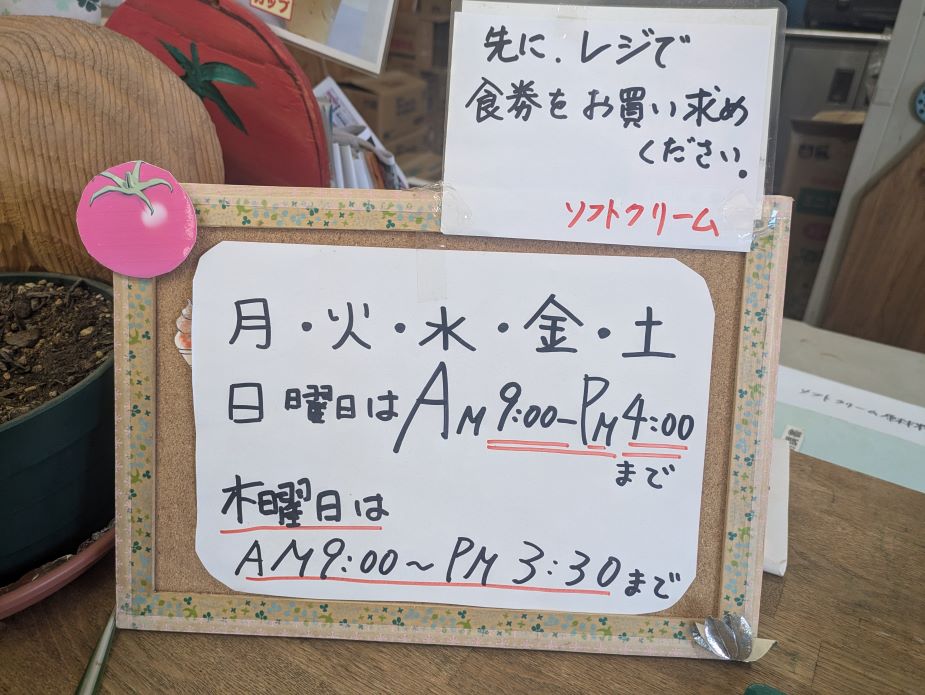 カップ
先に、レジで
食券をお買い求め
ください。
ソフトクリーム
月・火・水・金・土
日曜日はAM9:00-PM4:00
まで
木曜日は
AM9:00~PM3:30まで
ソフトクリーム